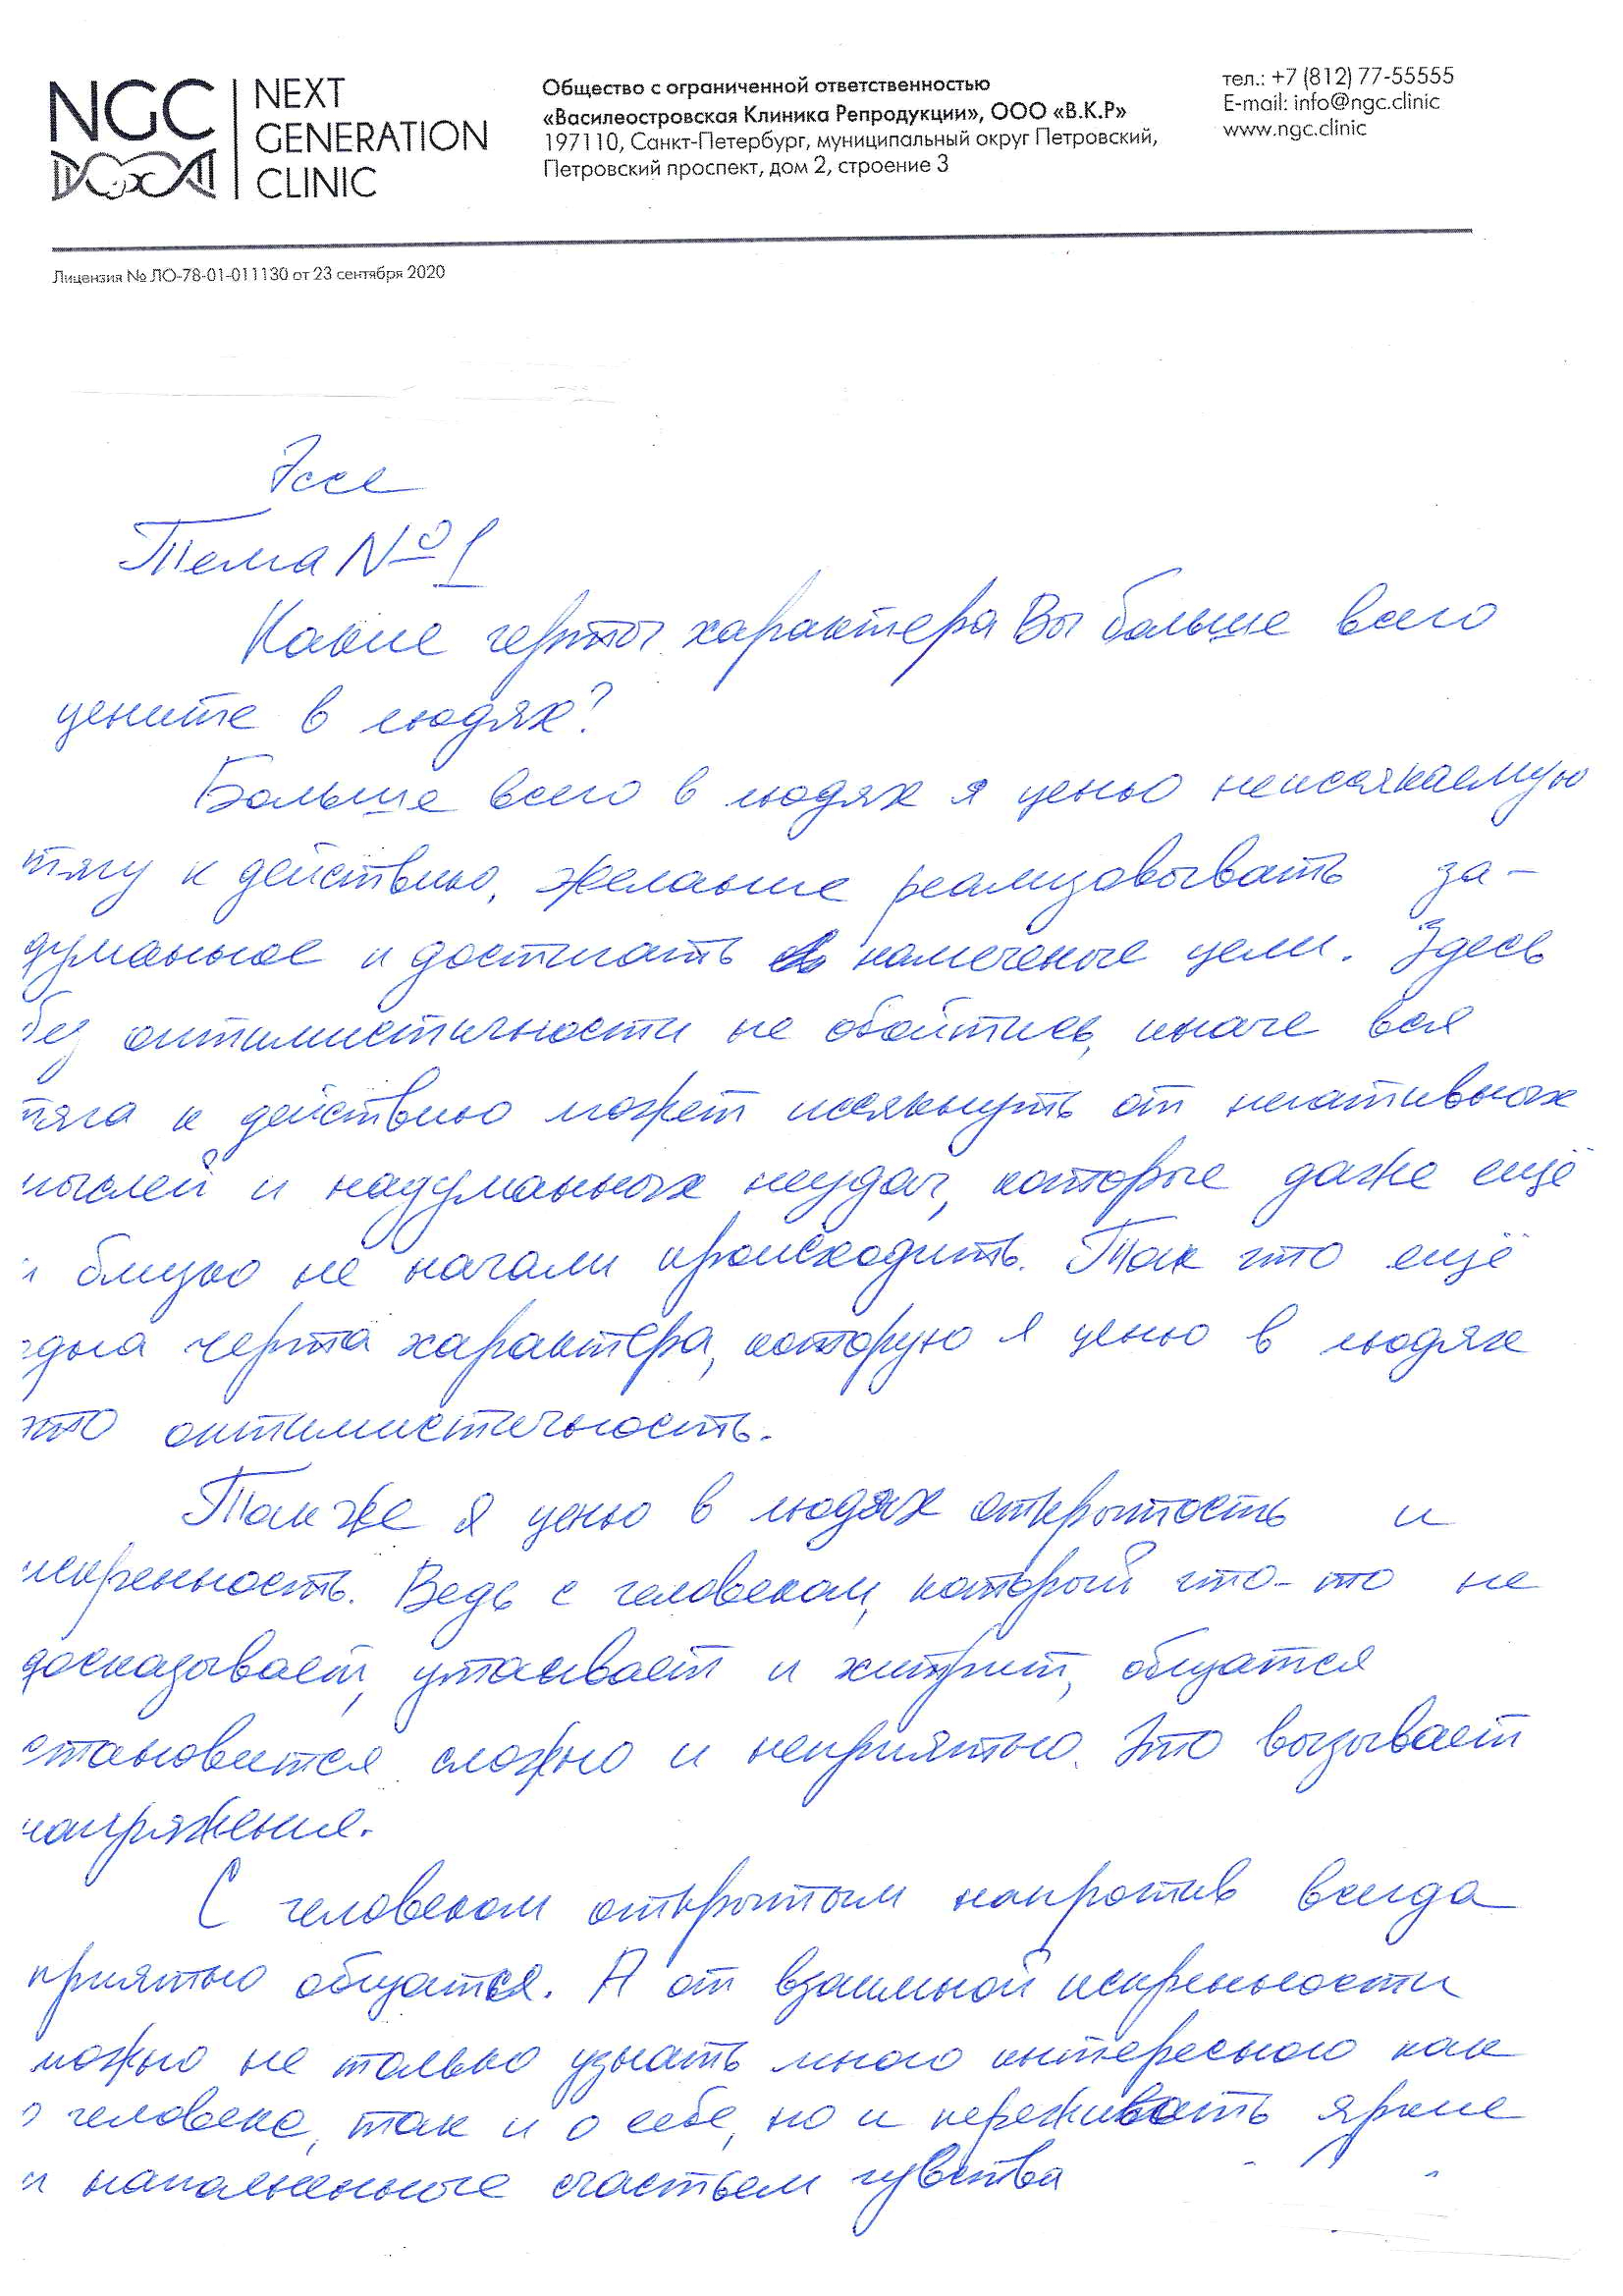 NGC
NEXT
GENERATION
CLINIC
Общество с ограниченной ответственностью
«Василеостровская Клиника Репродукции», ООО «В.К.Р»
197110, Санкт-Петербург, муниципальный округ Петровский,
Петровский проспект, дом 2, строение 3
тел.: +7 (812) 77-55555
E-mail: info@ngc.clinic
www.ngc.clinic
Лицензия № ЛО-78-01-011130 от 23 сентября 2020
Эссе
Тема № 1
Какие черты характера Вы больше всего
цените в людях?
Больше всего в людях я ценю неиссякаемую
тягу к действию, желание реализовывать за-
думанное и достигать намеченые цели. Здесь
без оптимистичности не обойтись, иначе вся
тяга к действию может иссякнуть от негативных
мыслей и надуманных неудач, которые даже ещё
и близко не начали происходить. Так что ещё
одна черта характера, которую я ценю в людях
это оптимистичность.
Также я ценю в людях открытость и
искренность. Ведь с человеком, который что-то не
досказывает, утаивает и хитрит, общатся
становится сложно и неприятно. Это вызывает
напряжение.
С человеком открытым напротив всегда
приятно общатся. А от взаимной искренности
можно не только узнать много интересного как
о человеке, так и о себе, но и переживать яркие
и наполненные счастьем чувства